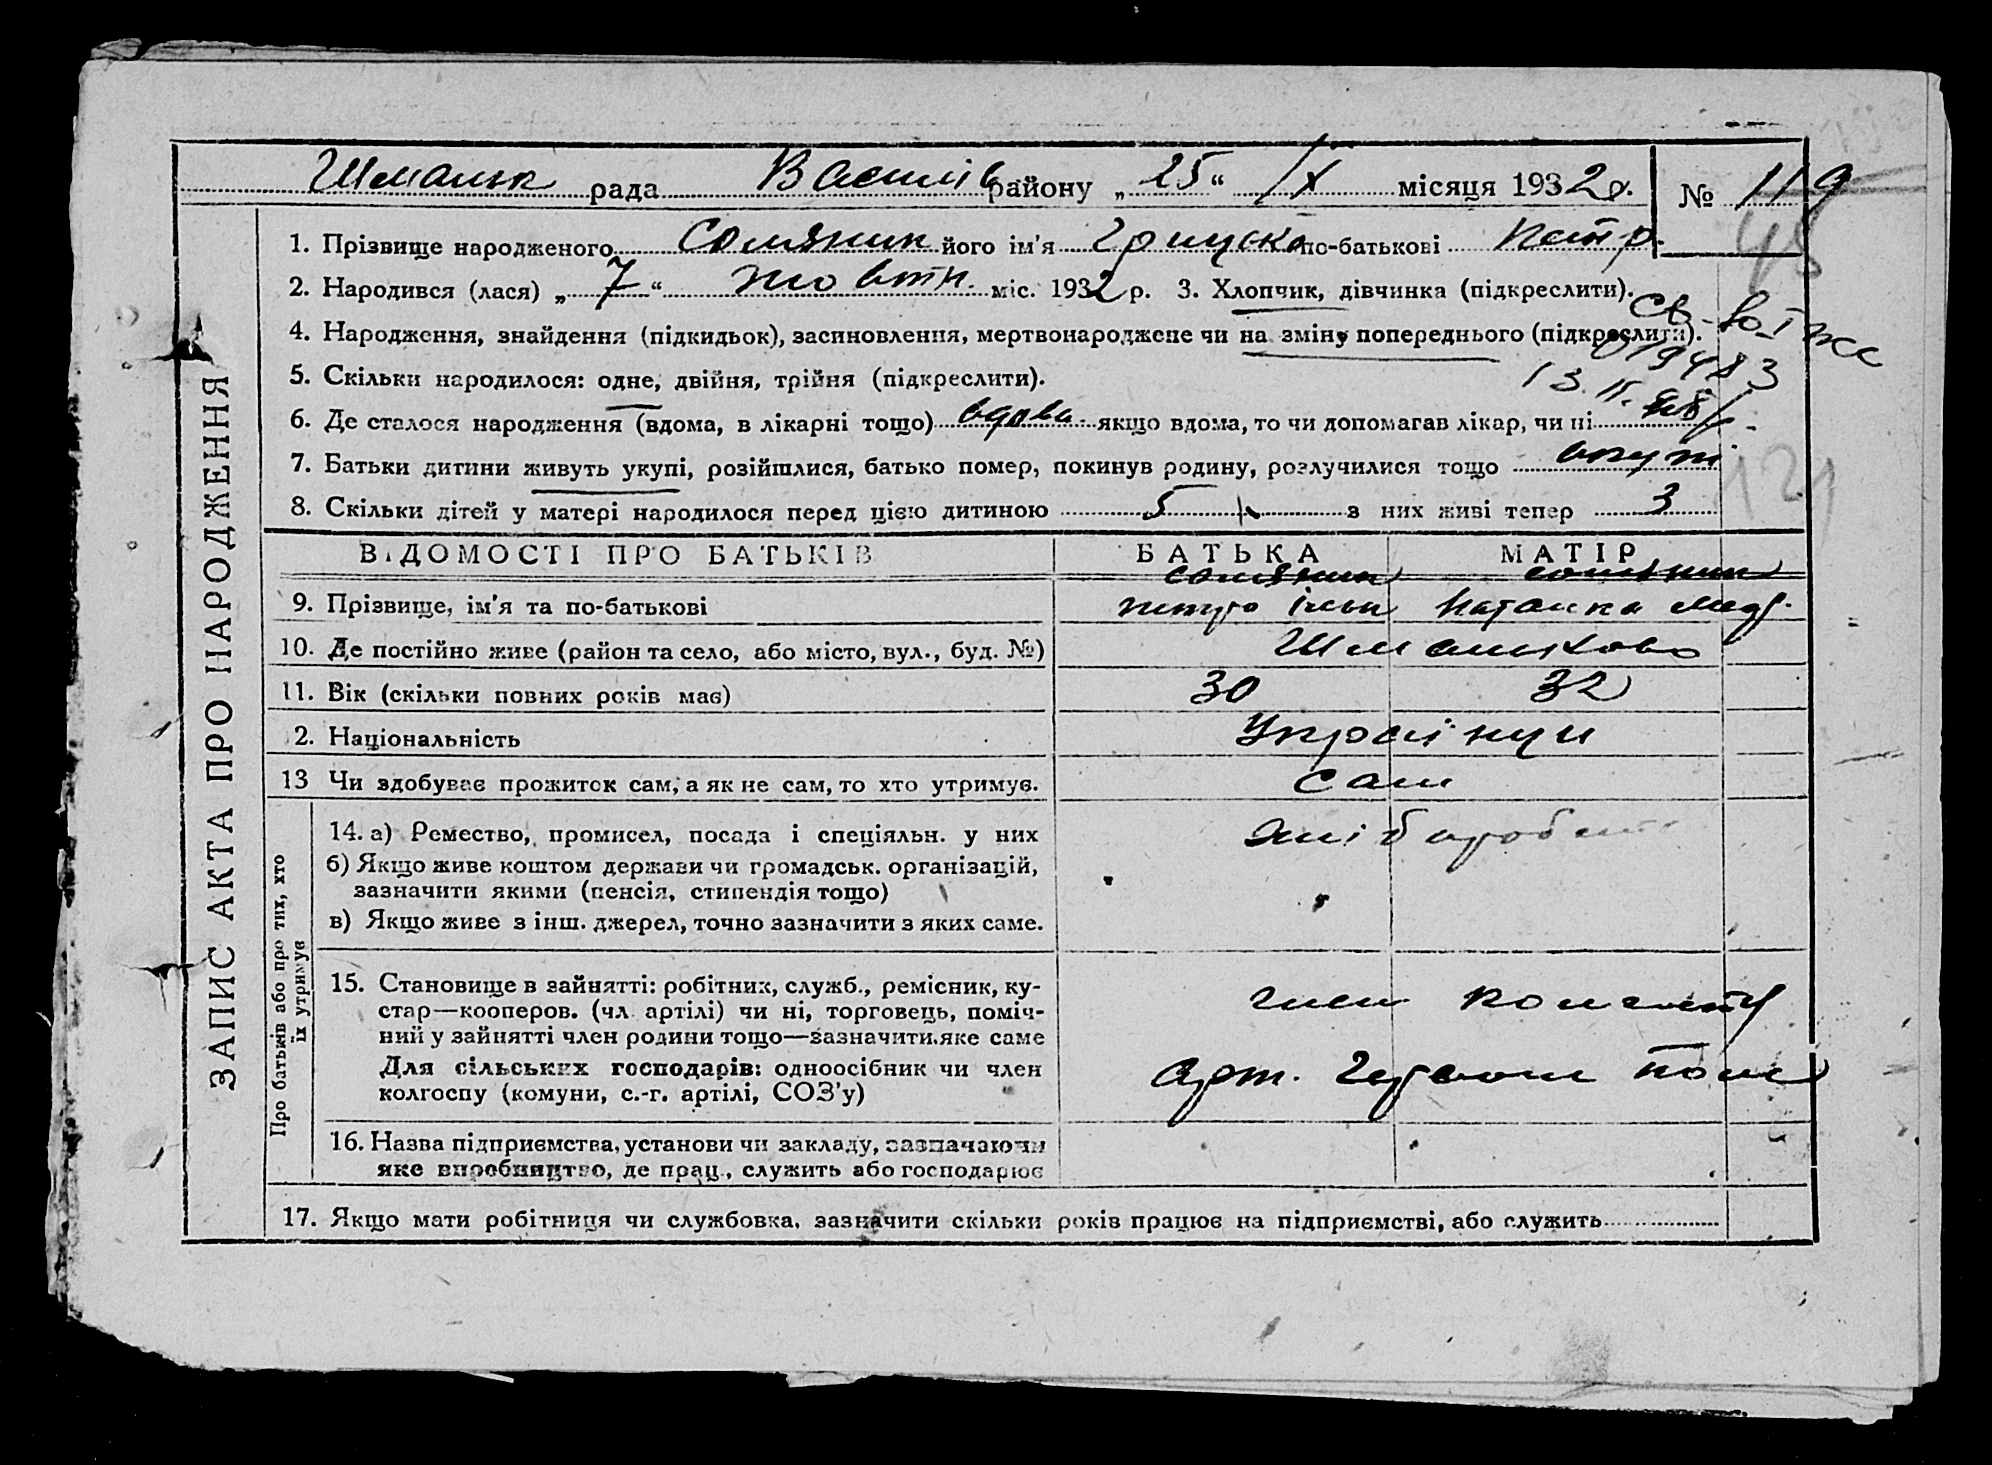 Шмальк рада Василів району „25“ IX місяця 1932 р. № 119
45
1. Прізвище народженого Соляник його ім'я Грицько по-батькові Петр.
2. Народився (лася) „7“ жовтн. міс. 1932 р. 3. Хлопчик, дівчинка (підкреслити).
4. Народження, знайдення (підкидьок), засиновлення, мертвонароджене чи на зміну попереднього (підкреслити).
019483
5. Скільки народилося: одне, двійня, трійня (підкреслити).
13
6. Де сталося народження (вдома, в лікарні тощо) вдома якщо вдома, то чи допомагав лікар, чи ні
7. Батьки дитини живуть укупі, розійшлися, батько помер, покинув родину, розлучилися тощо вкупі
121
8. Скільки дітей у матері народилося перед цією дитиною 5 з них живі тепер 3
ВІДОМОСТІ ПРО БАТЬКІВ БАТЬКА МАТІР
Соляник Соляник
9. Прізвище, ім'я та по-батькові Петро Ільк
10. Де постійно живе (район та село, або місто, вул., буд. №) Шмальково
11. Вік (скільки повних років має) 30 32
12. Національність Українци
13 Чи здобуває прожиток сам, а як не сам, то хто утримує. сам
ЗАПИС АКТА ПРО НАРОДЖЕННЯ
Про батьків або про тих, хто
їх утримує
14. а) Ремество, промисел, посада і спеціяльн. у них хлібороби
б) Якщо живе коштом держави чи громадськ. організацій,
зазначити якими (пенсія, стипендія тощо)
в) Якщо живе з інш. джерел, точно зазначити з яких саме.
15. Становище в зайнятті: робітник, служб., ремісник, ку-
стар—кооперов. (чл. артілі) чи ні, торговець, поміч- член колгоспу
ний у зайнятті член родини тощо—зазначити яке саме
Для сільських господарів: одноосібник чи член арт. Червон поле
колгоспу (комуни, с.-г. артілі, СОЗ'у)
16. Назва підприємства, установи чи закладу, зазначаючи
яке виробництво, де прац., служить або господарює
17. Якщо мати робітниця чи службовка, зазначити скільки років працює на підприємстві, або служить